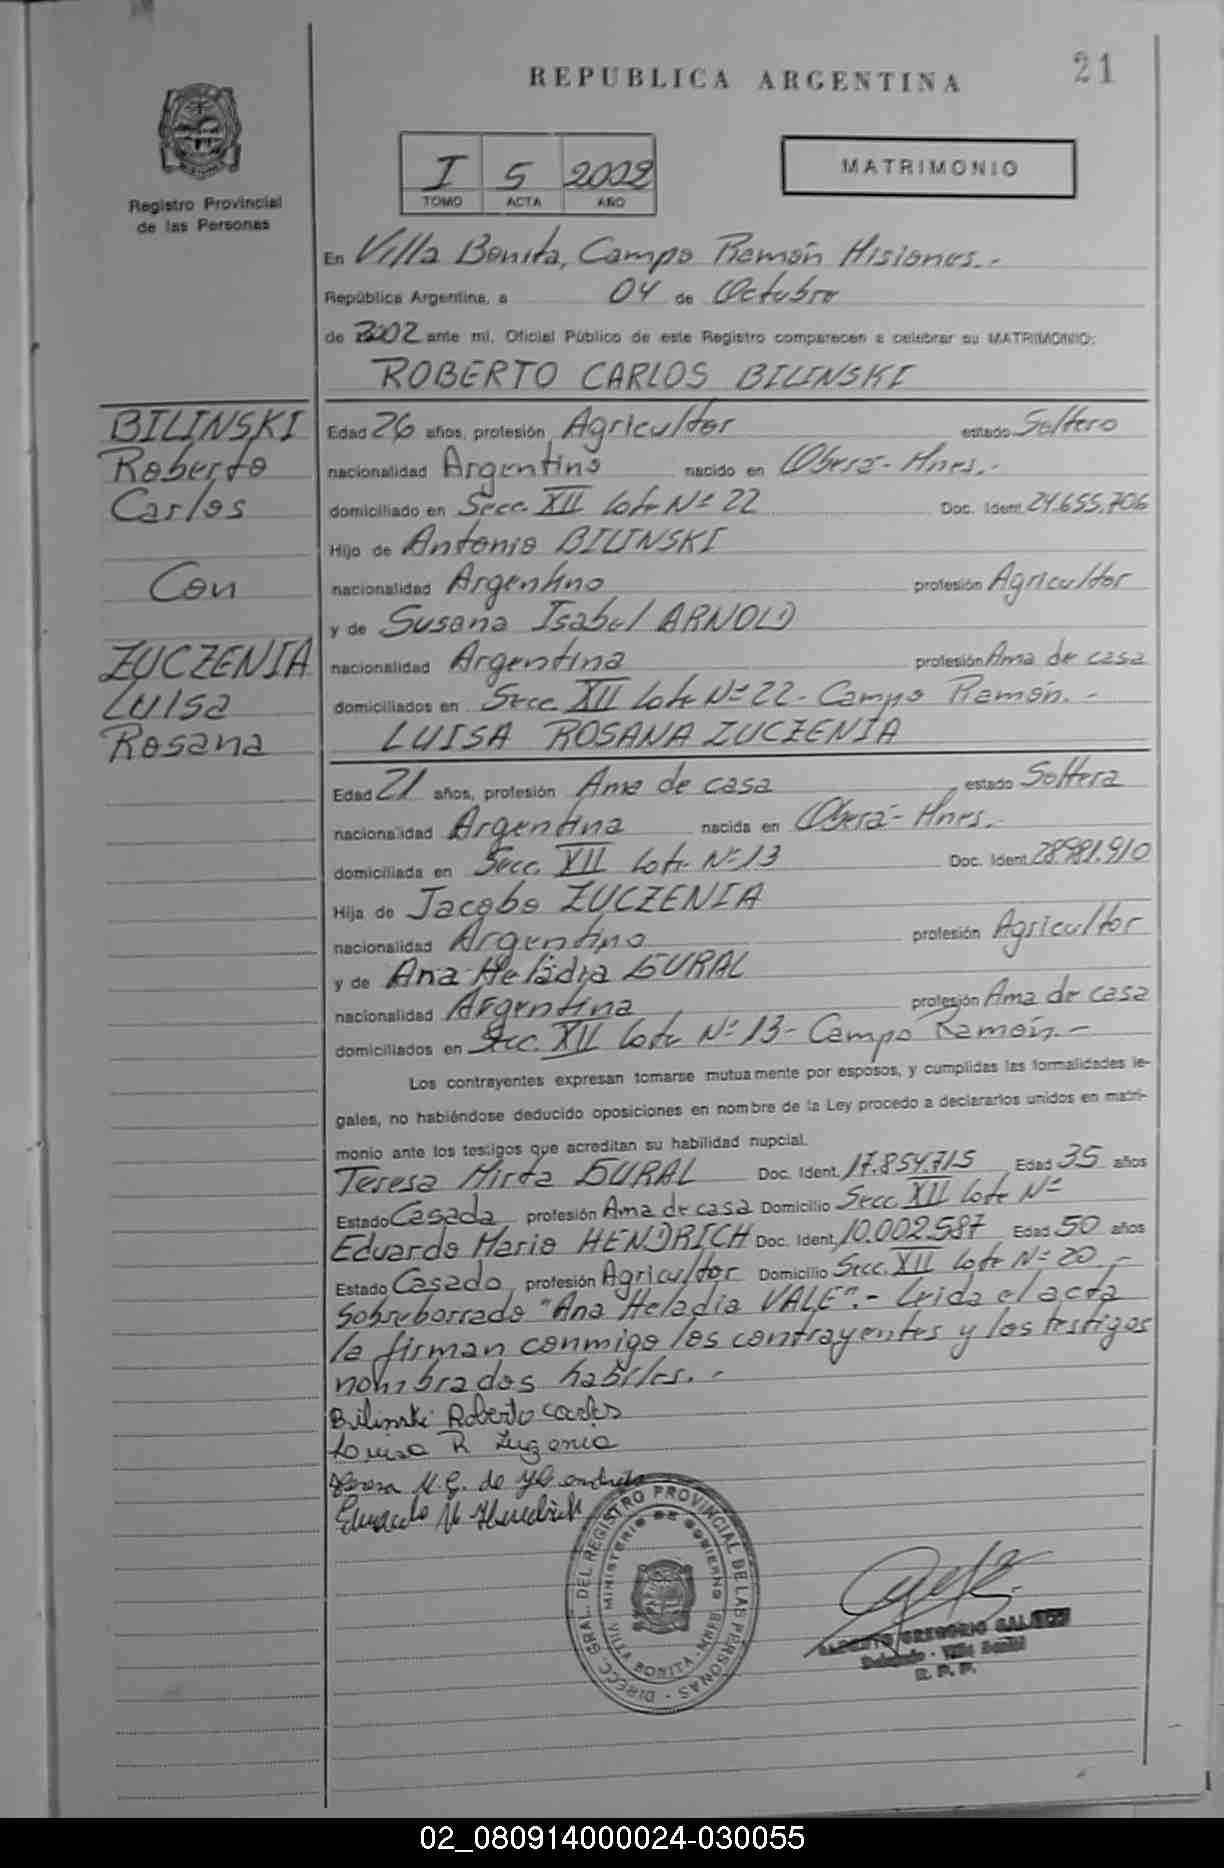 21
REPUBLICA ARGENTINA
I 5 2002
TOMO ACTA AÑO
MATRIMONIO
Registro Provincial
de las Personas
En Villa Bonita, Campo Ramón Misiones.-
República Argentina, a 04 de Octubre
de 2002 ante mi, Oficial Público de este Registro comparecen a celebrar su MATRIMONIO:
ROBERTO CARLOS BILINSKI
BILINSKI
Roberto
Carlos
Con
ZUCZENIA
Luisa
Rosana
Edad 26 años, profesión Agricultor estado Soltero
nacionalidad Argentino nacido en Oberá - Mnes.-
domiciliado en Secc. XII Lote Nº 22 Doc. Ident. 24.655.706
Hijo de Antonio BILINSKI
nacionalidad Argentino profesión Agricultor
y de Susana Isabel ARNOLD
nacionalidad Argentina profesión Ama de casa
domiciliados en Secc. XII Lote Nº 22 - Campo Ramón.-
LUISA ROSANA ZUCZENIA
Edad 21 años, profesión Ama de casa estado Soltera
nacionalidad Argentina nacida en Oberá - Mnes.
domiciliada en Secc. XII Lote Nº 13 Doc. Ident. 28.981.910
Hija de Jacobo ZUCZENIA
nacionalidad Argentino profesión Agricultor
y de Ana Heladia GURAL
nacionalidad Argentina profesión Ama de casa
domiciliados en Secc. XII Lote Nº 13 - Campo Ramón.-
Los contrayentes expresan tomarse mutuamente por esposos, y cumplidas las formalidades le-
gales, no habiéndose deducido oposiciones en nombre de la Ley procedo a declararlos unidos en matri-
monio ante los testigos que acreditan su habilidad nupcial.
Teresa Mirta GURAL Doc. Ident. 17.854.715 Edad 35 años
Estado Casada profesión Ama de casa Domicilio Secc. XII Lote Nº
Eduardo Mario HENDRICH Doc. Ident. 10.002.587 Edad 50 años
Estado Casado profesión Agricultor Domicilio Secc. XII Lote Nº 20.-
Sobreborrado "Ana Heladia VALE".- Leida el acta
la firman conmigo los contrayentes y los testigos
nombrados habiles.-
Bilinski Roberto Carlos
Luisa R Zugenia
Teresa M. G. de Hendrich
Eduardo M Hendrich
DIRECC. GRAL. DEL REGISTRO PROVINCIAL DE LAS PERSONAS
MINISTERIO DE GOBIERNO
VILLA BONITA - MNES
GREGORIO
Delegado - Villa Bonita
R. P. P.
02_080914000024-030055